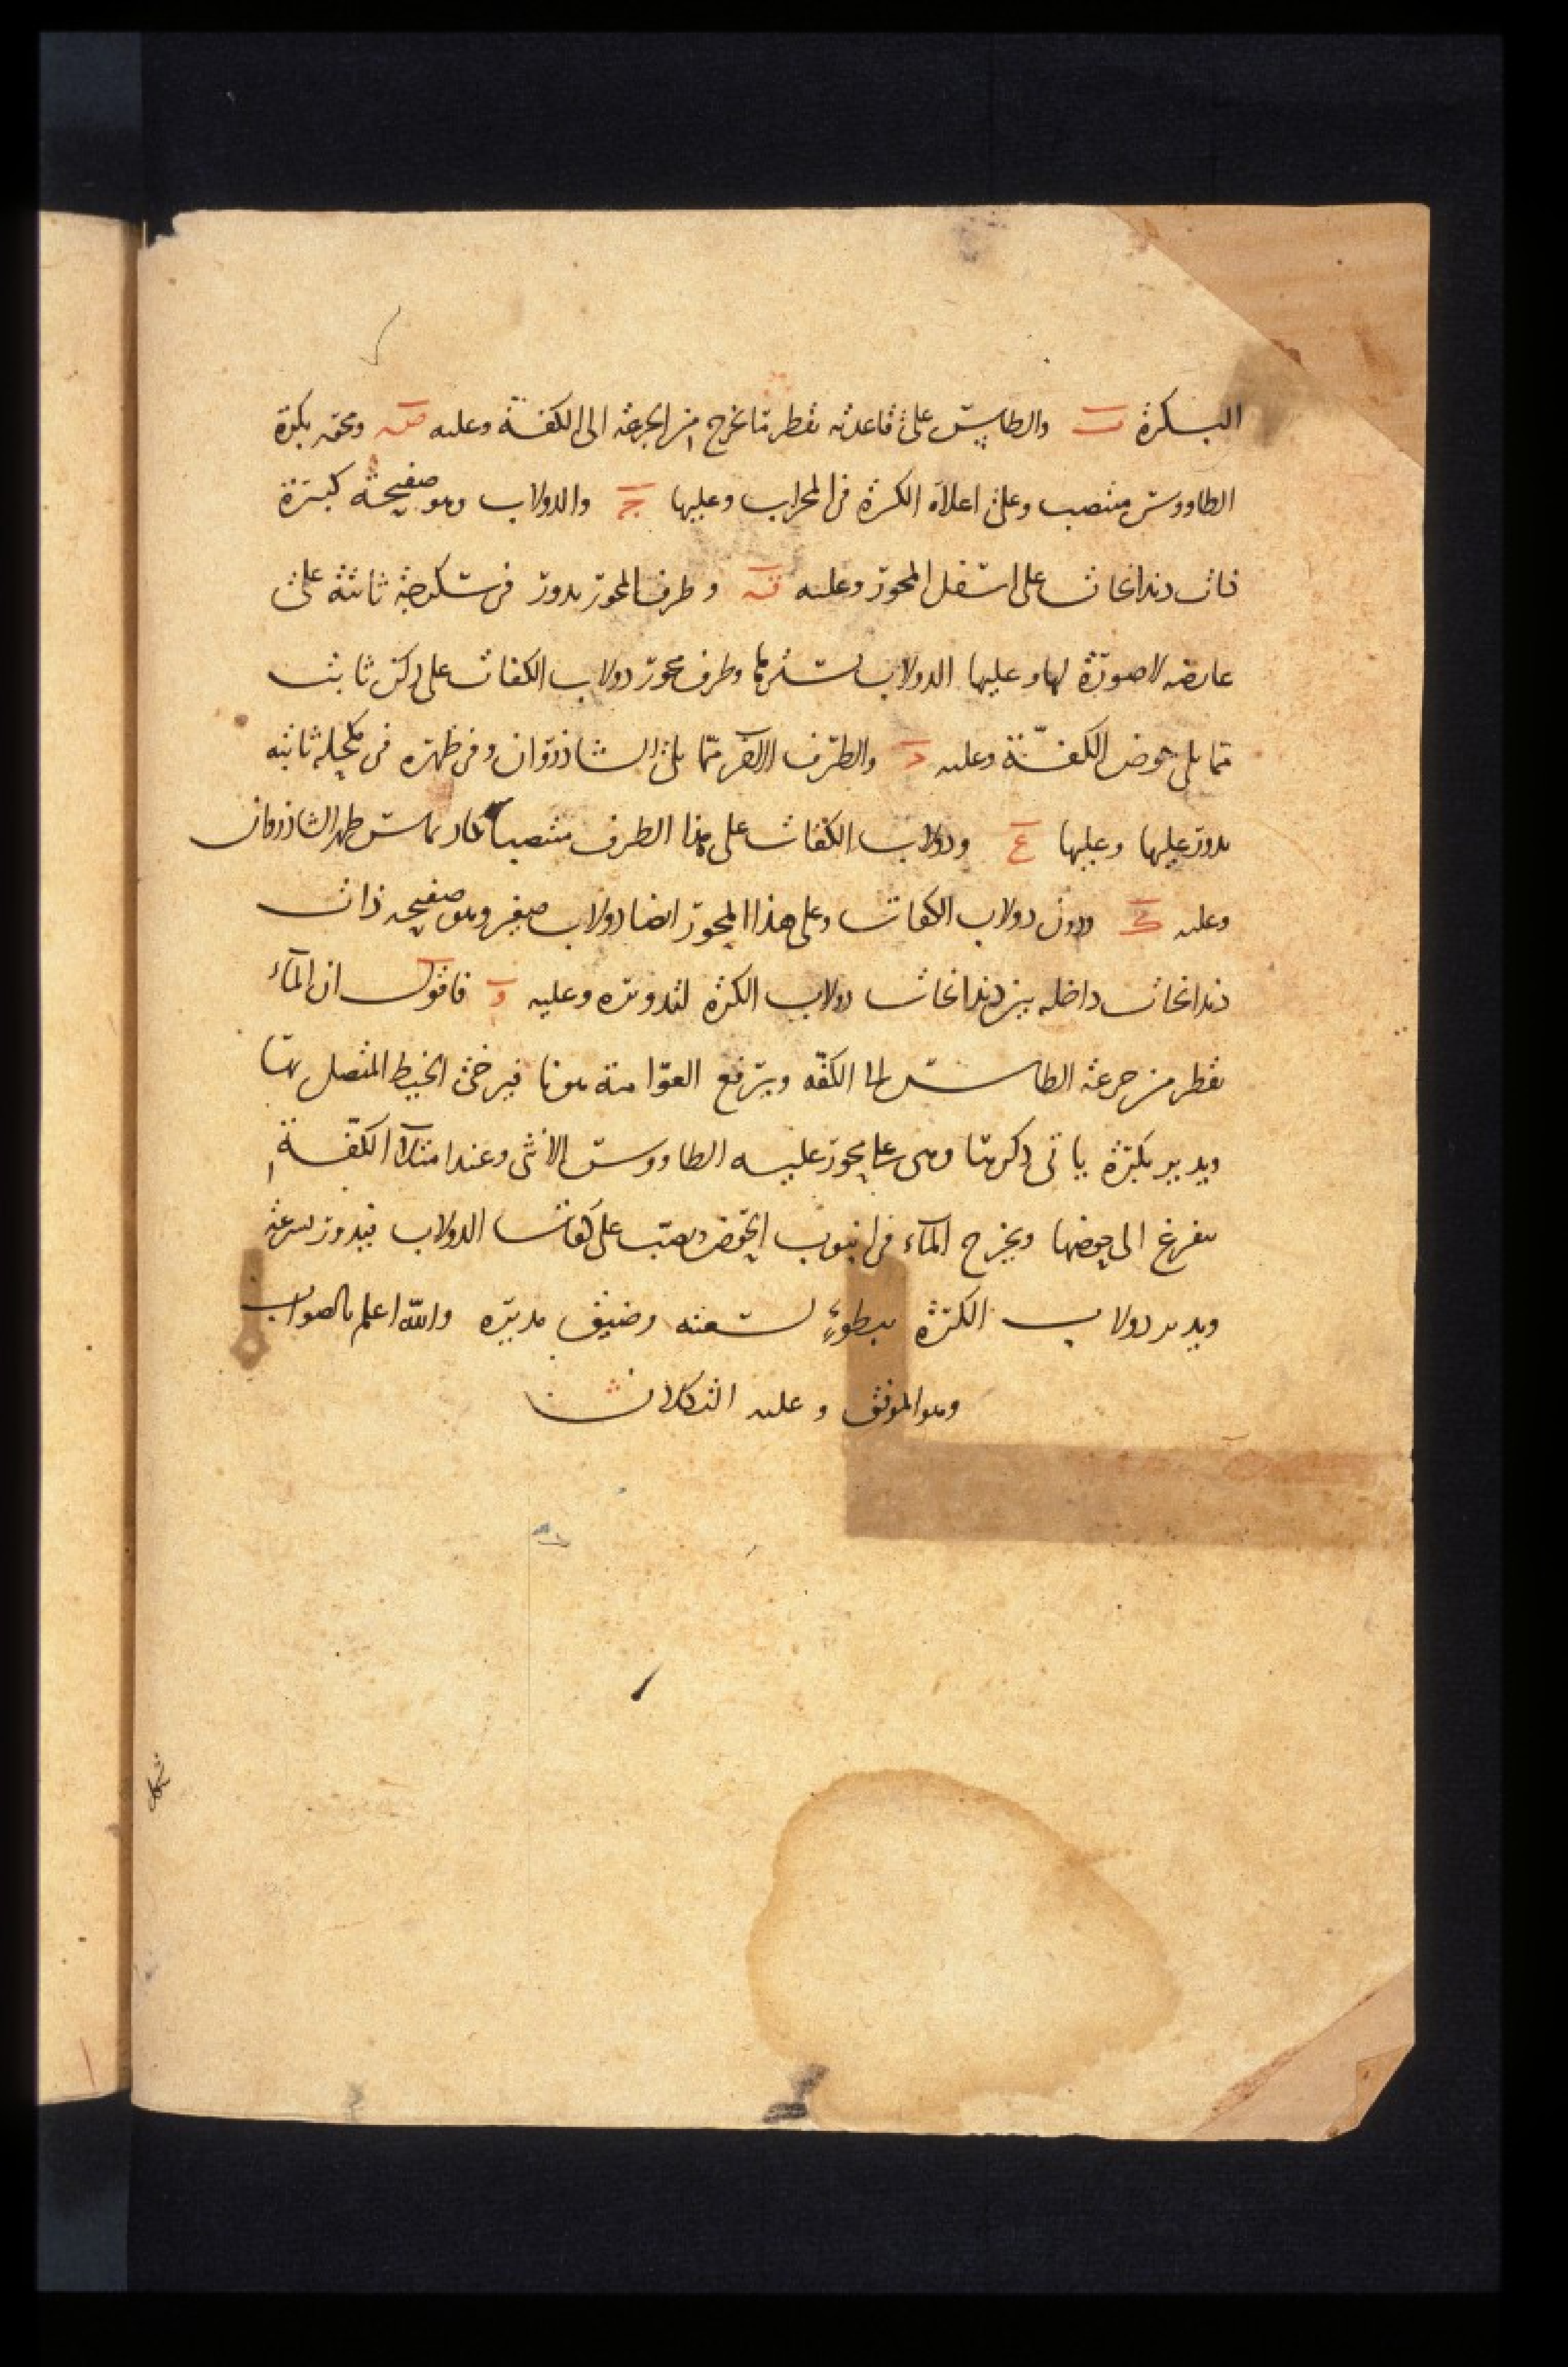 البكرة ب والطاس على قاعدته يقطر ما يخرج من الجزعة الى الكفة وعليه ص ومحور بكرة
الطاووس منتصب وعلى اعلاه الكرة في المحراب وعليها ج والدولاب وهو صفيحة كبيرة
ذات دندانجات على اسفل المحور وعليه ق وطرف المحور يدور في سكرجة ثابتة على
عارضة لا صورة لها وعليها الدولاب يسترها وطرف محور دولاب الكفات على ركن ثابت
مما يلي حوض الكفة وعليه د والطرف الاخر مما يلي الشاذروان وفي ظهره في مكحلة ثابتة
يدور عليها وعليها ع ودولاب الكفات على هذا الطرف منتصبا يكاد يماس ظهر الشاذروان
وعليه ط ودون دولاب الكفات وعلى هذا المحور ايضا دولاب صغير وهو صفيحة ذات
دندانجات داخلة بين دندانجات دولاب الكرة لتدويره وعليه و فاقول ان الماء
يقطر من جزعة الطاس الى الكفة ويرتفع العوامة هونا فيرخى الخيط المتصل بها
ويدير بكرة ياتي ذكرها وهي على محور عليه الطاووس الانثى وعند امتلاء الكفة
يتفرغ الى حوضها ويخرج الماء في انبوب الحوض ويصب على كفات الدولاب فيدور بسرعة
ويدير دولاب الكرة ببطوء لسعته وضيق مديره والله اعلم بالصواب
وهو الموفق وعليه التكلان
شكل